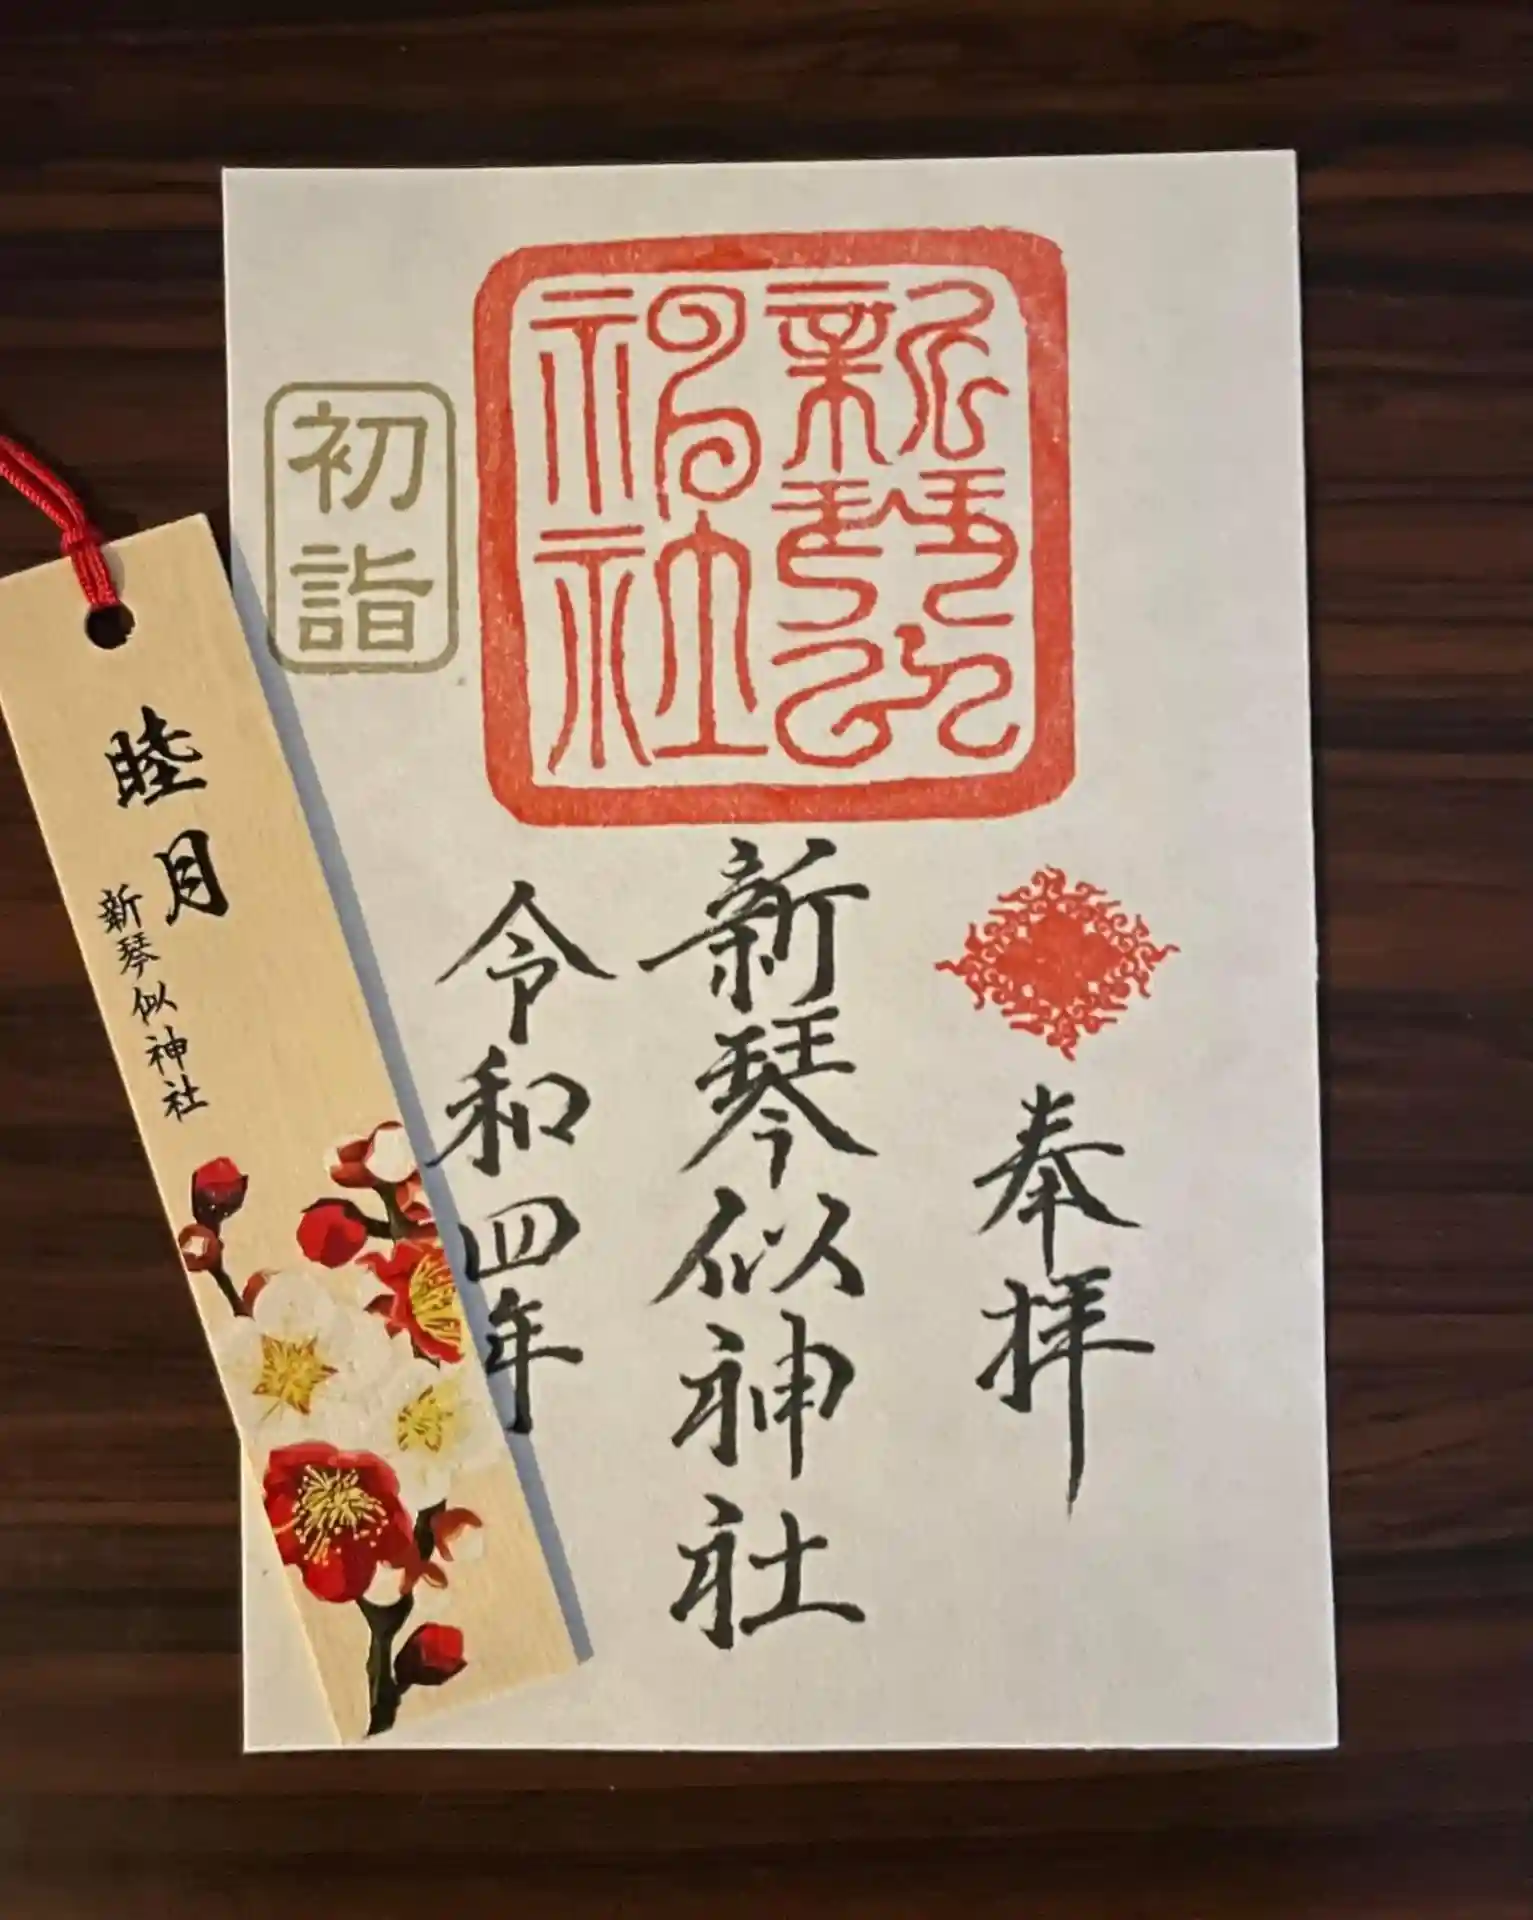 奉拝
新琴似神社
令和四年
新琴似神社
初詣
睦月
新琴似神社